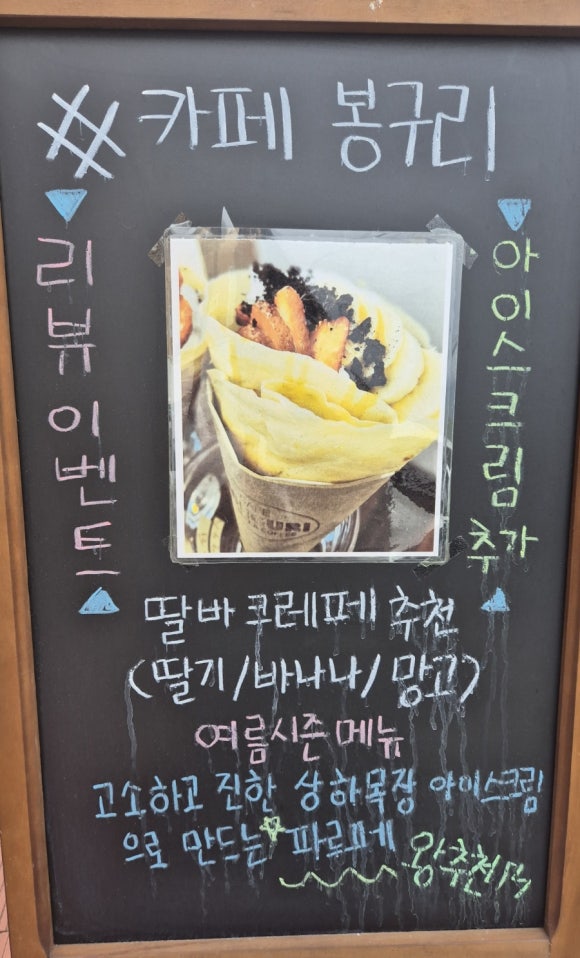 # 카페 봉구리
리뷰이벤트
아이스크림
추가
URI
딸바 크레페 추천
(딸기/바나나/망고)
여름시즌메뉴
고소하고 진한 상하목장 아이스크림
으로 만드는 파르페
왕추천